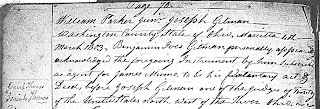 Page 72
William Parker Junr Joseph Gilman
Washington County State of Ohio, Marietta 4th
March 1803, Benjamin Ives Gilman personally appeared
acknowledged the foregoing Instrument by him subscribed
as agent for James Munro, to be his voluntary act &
Deed, before Joseph Gilman one of the judges of
of the United States North west of the River Ohio,